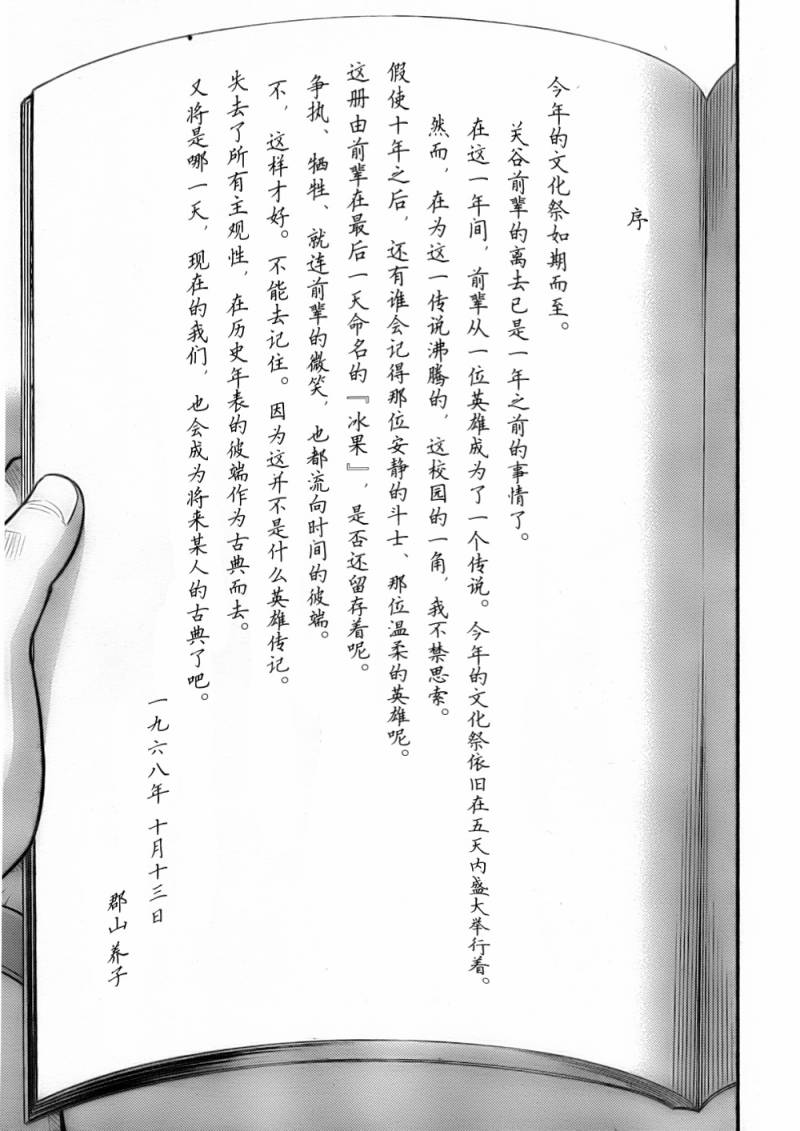 序
今年的文化祭如期而至。
关谷前辈的离去已是一年之前的事情了。
在这一年间，前辈从一位英雄成为了一个传说。今年的文化祭依旧在五天内盛大举行着。
然而，在为这一传说沸腾的，这校园的一角，我不禁思索。
假使十年之后，还有谁会记得那位安静的斗士、那位温柔的英雄呢。
这册由前辈在最后一天命名的『冰果』，是否还留存着呢。
争执、牺牲、就连前辈的微笑，也都流向时间的彼端。
不，这样才好。不能去记住。因为这并不是什么英雄传记。
失去了所有主观性，在历史年表的彼端作为古典而去。
又将是哪一天，现在的我们，也会成为将来某人的古典了吧。
一九六八年 十月十三日
郡山养子